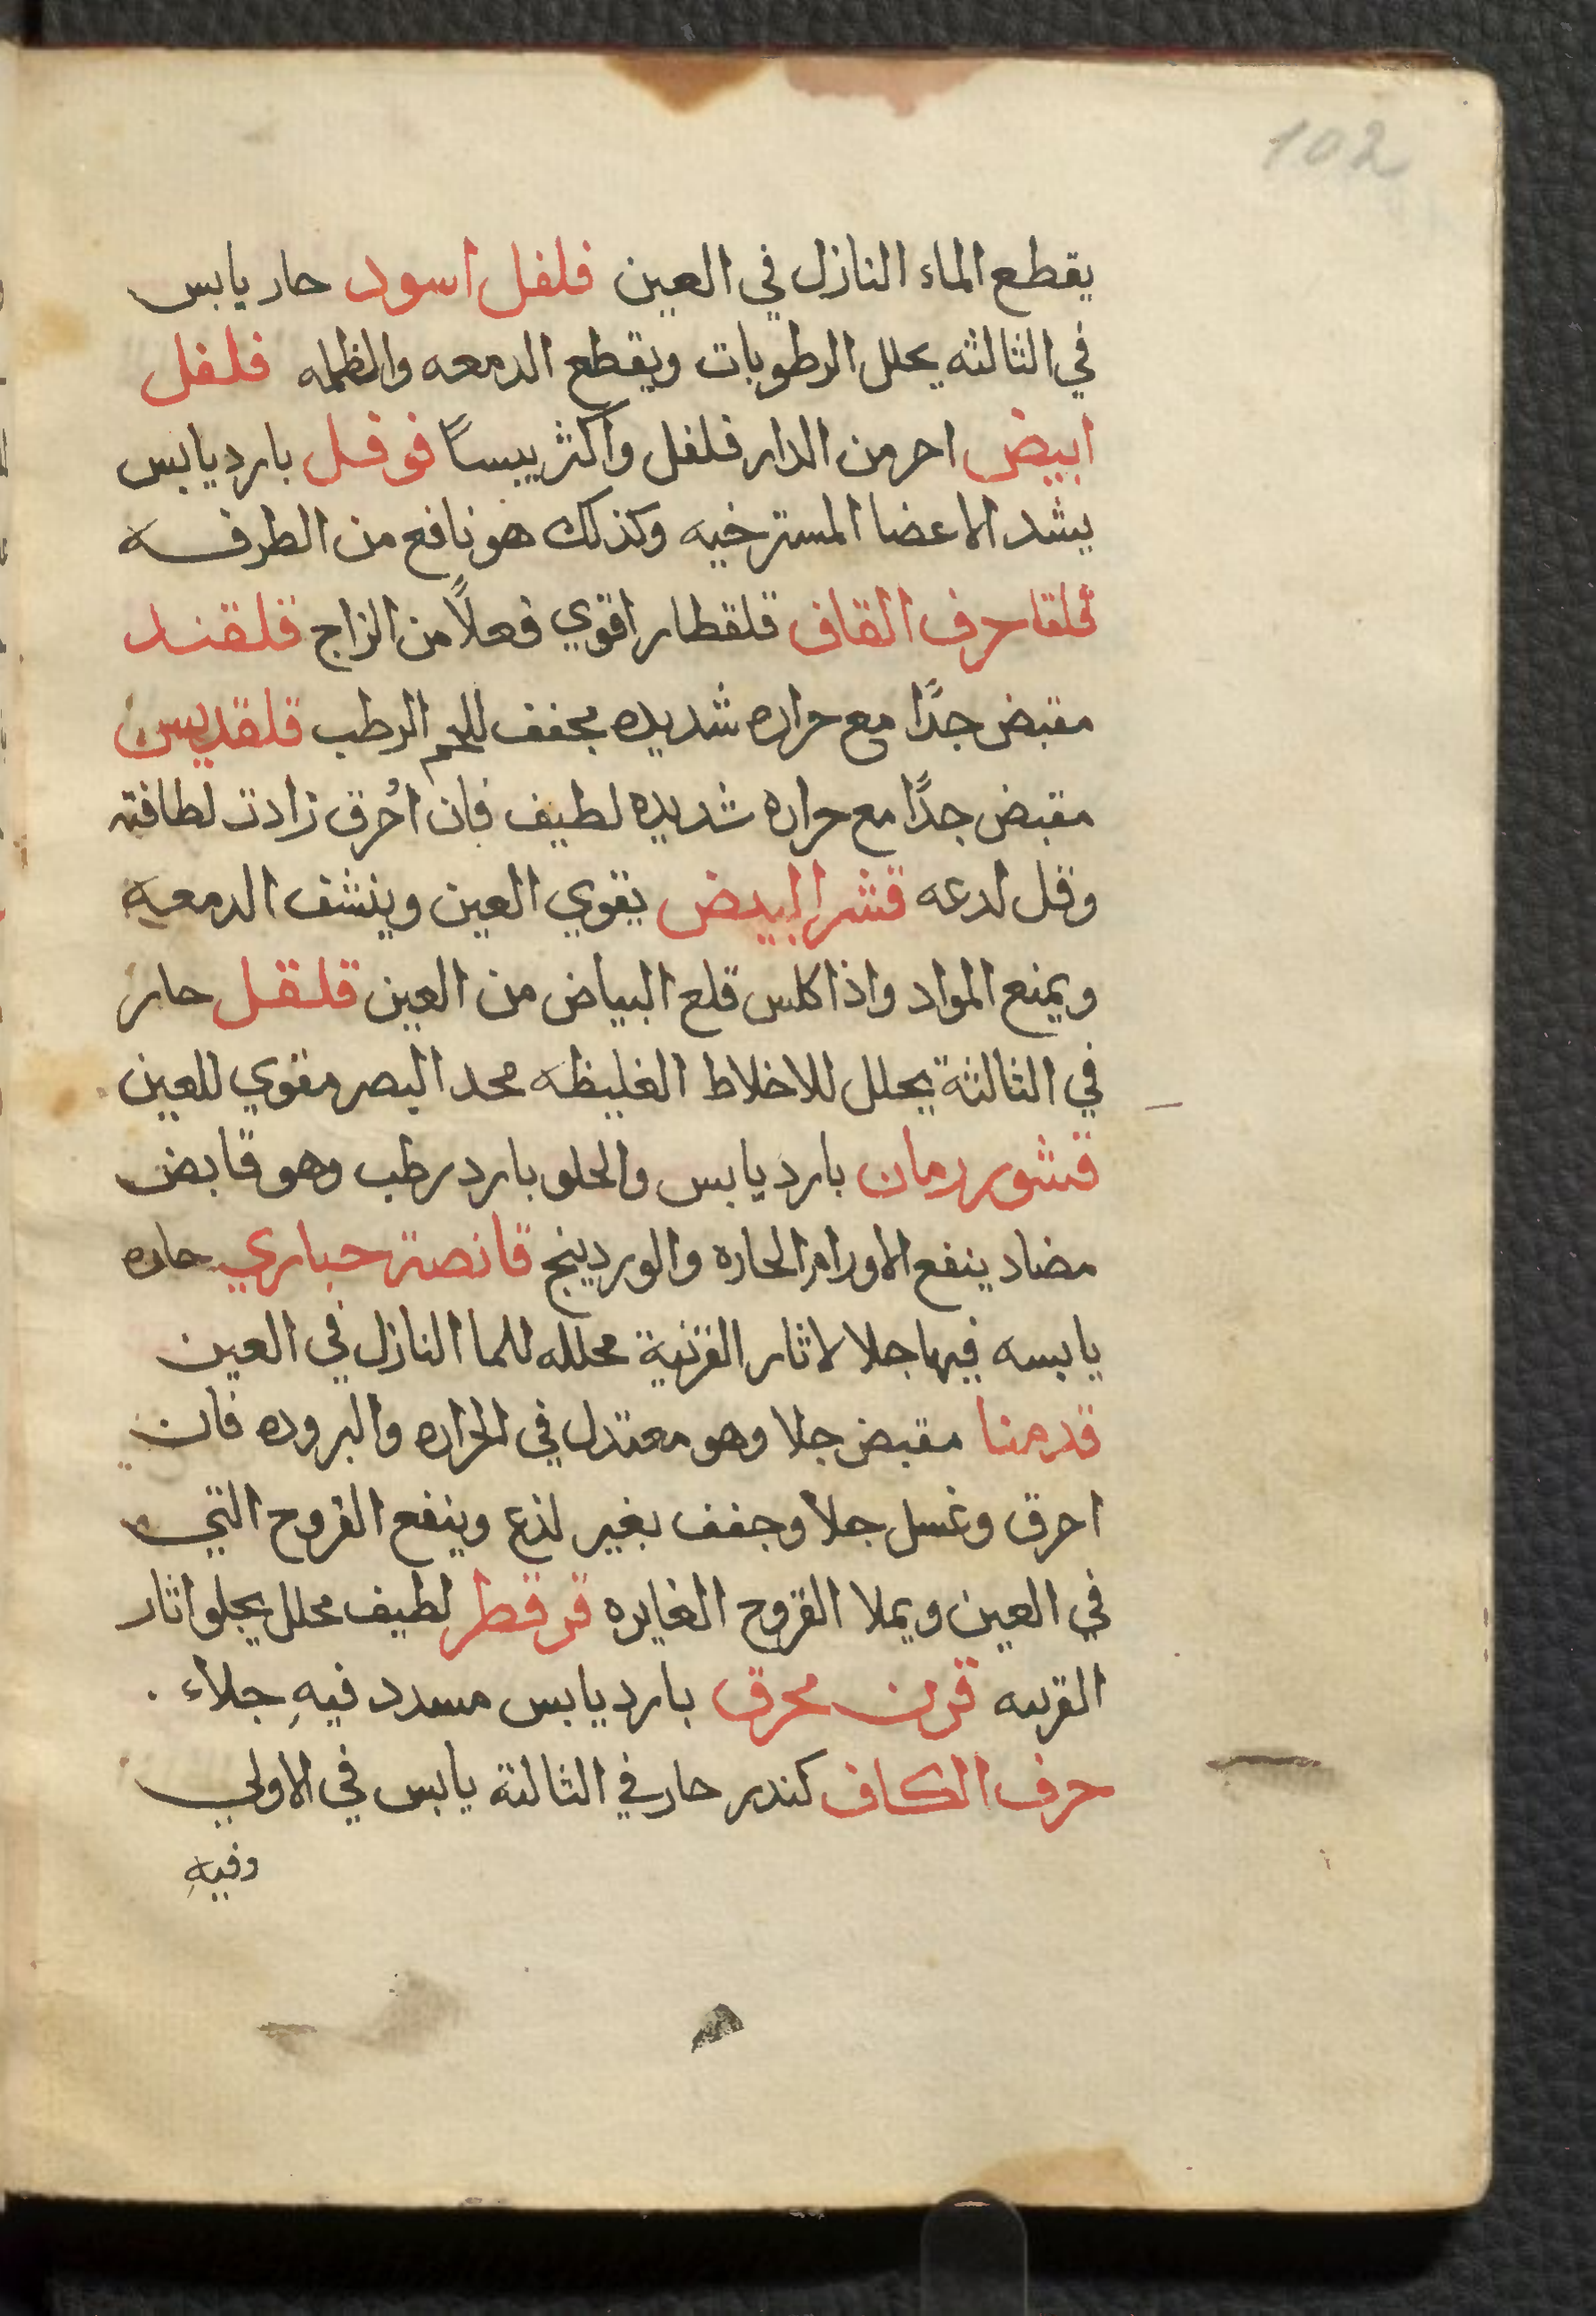 102
يقطع الماء النازل في العين فلفل اسود حار يابس
في الثالثه يحلل الرطوبات ويقطع الدمعه والظلمه فلفل
ابيض احر من الدار فلفل واكثر يبساً فوفل بارد يابس
يشد الاعضا المسترخيه وكذلك هو نافع من الطرفه
حرف القاف قلقطار اقوي فعلاً من الزاج قلقند
مقبض جدًا مع حراره شديده مجفف للحم الرطب قلقديس
مقبض جدًا مع حراره شديده لطيف فان اُحرق زادت لطافته
وقل لدعه قشر البيض يقوي العين وينشف الدمعه
ويمنع المواد واذا كلس قلع البياض من العين قلقل حار
في الثالثة يحلل للاخلاط الغليظه محد البصر مقوي للعين
قشور رمان بارد يابس والحلو بارد رطب وهو قابض
مضاد ينفع الاورام الحاره والوردينج قانصة حباري حاره
يابسه فيها جلا لاثار القرنية محلله للما النازل في العين
قدمنا مقبض جلا وهو معتدل في الحراره والبروده فان
احرق وغسل جلا وجفف بغير لذع وينفع القروح التي
في العين ويملا القروح الغايره قرقطر لطيف محلل يجلو اثار
القرىىه قرن محرق بارد يابس مسدد فيهِ جلاء .
حرف الكاف كندر حار في الثالثة يابس في الاولي
وفيهِ